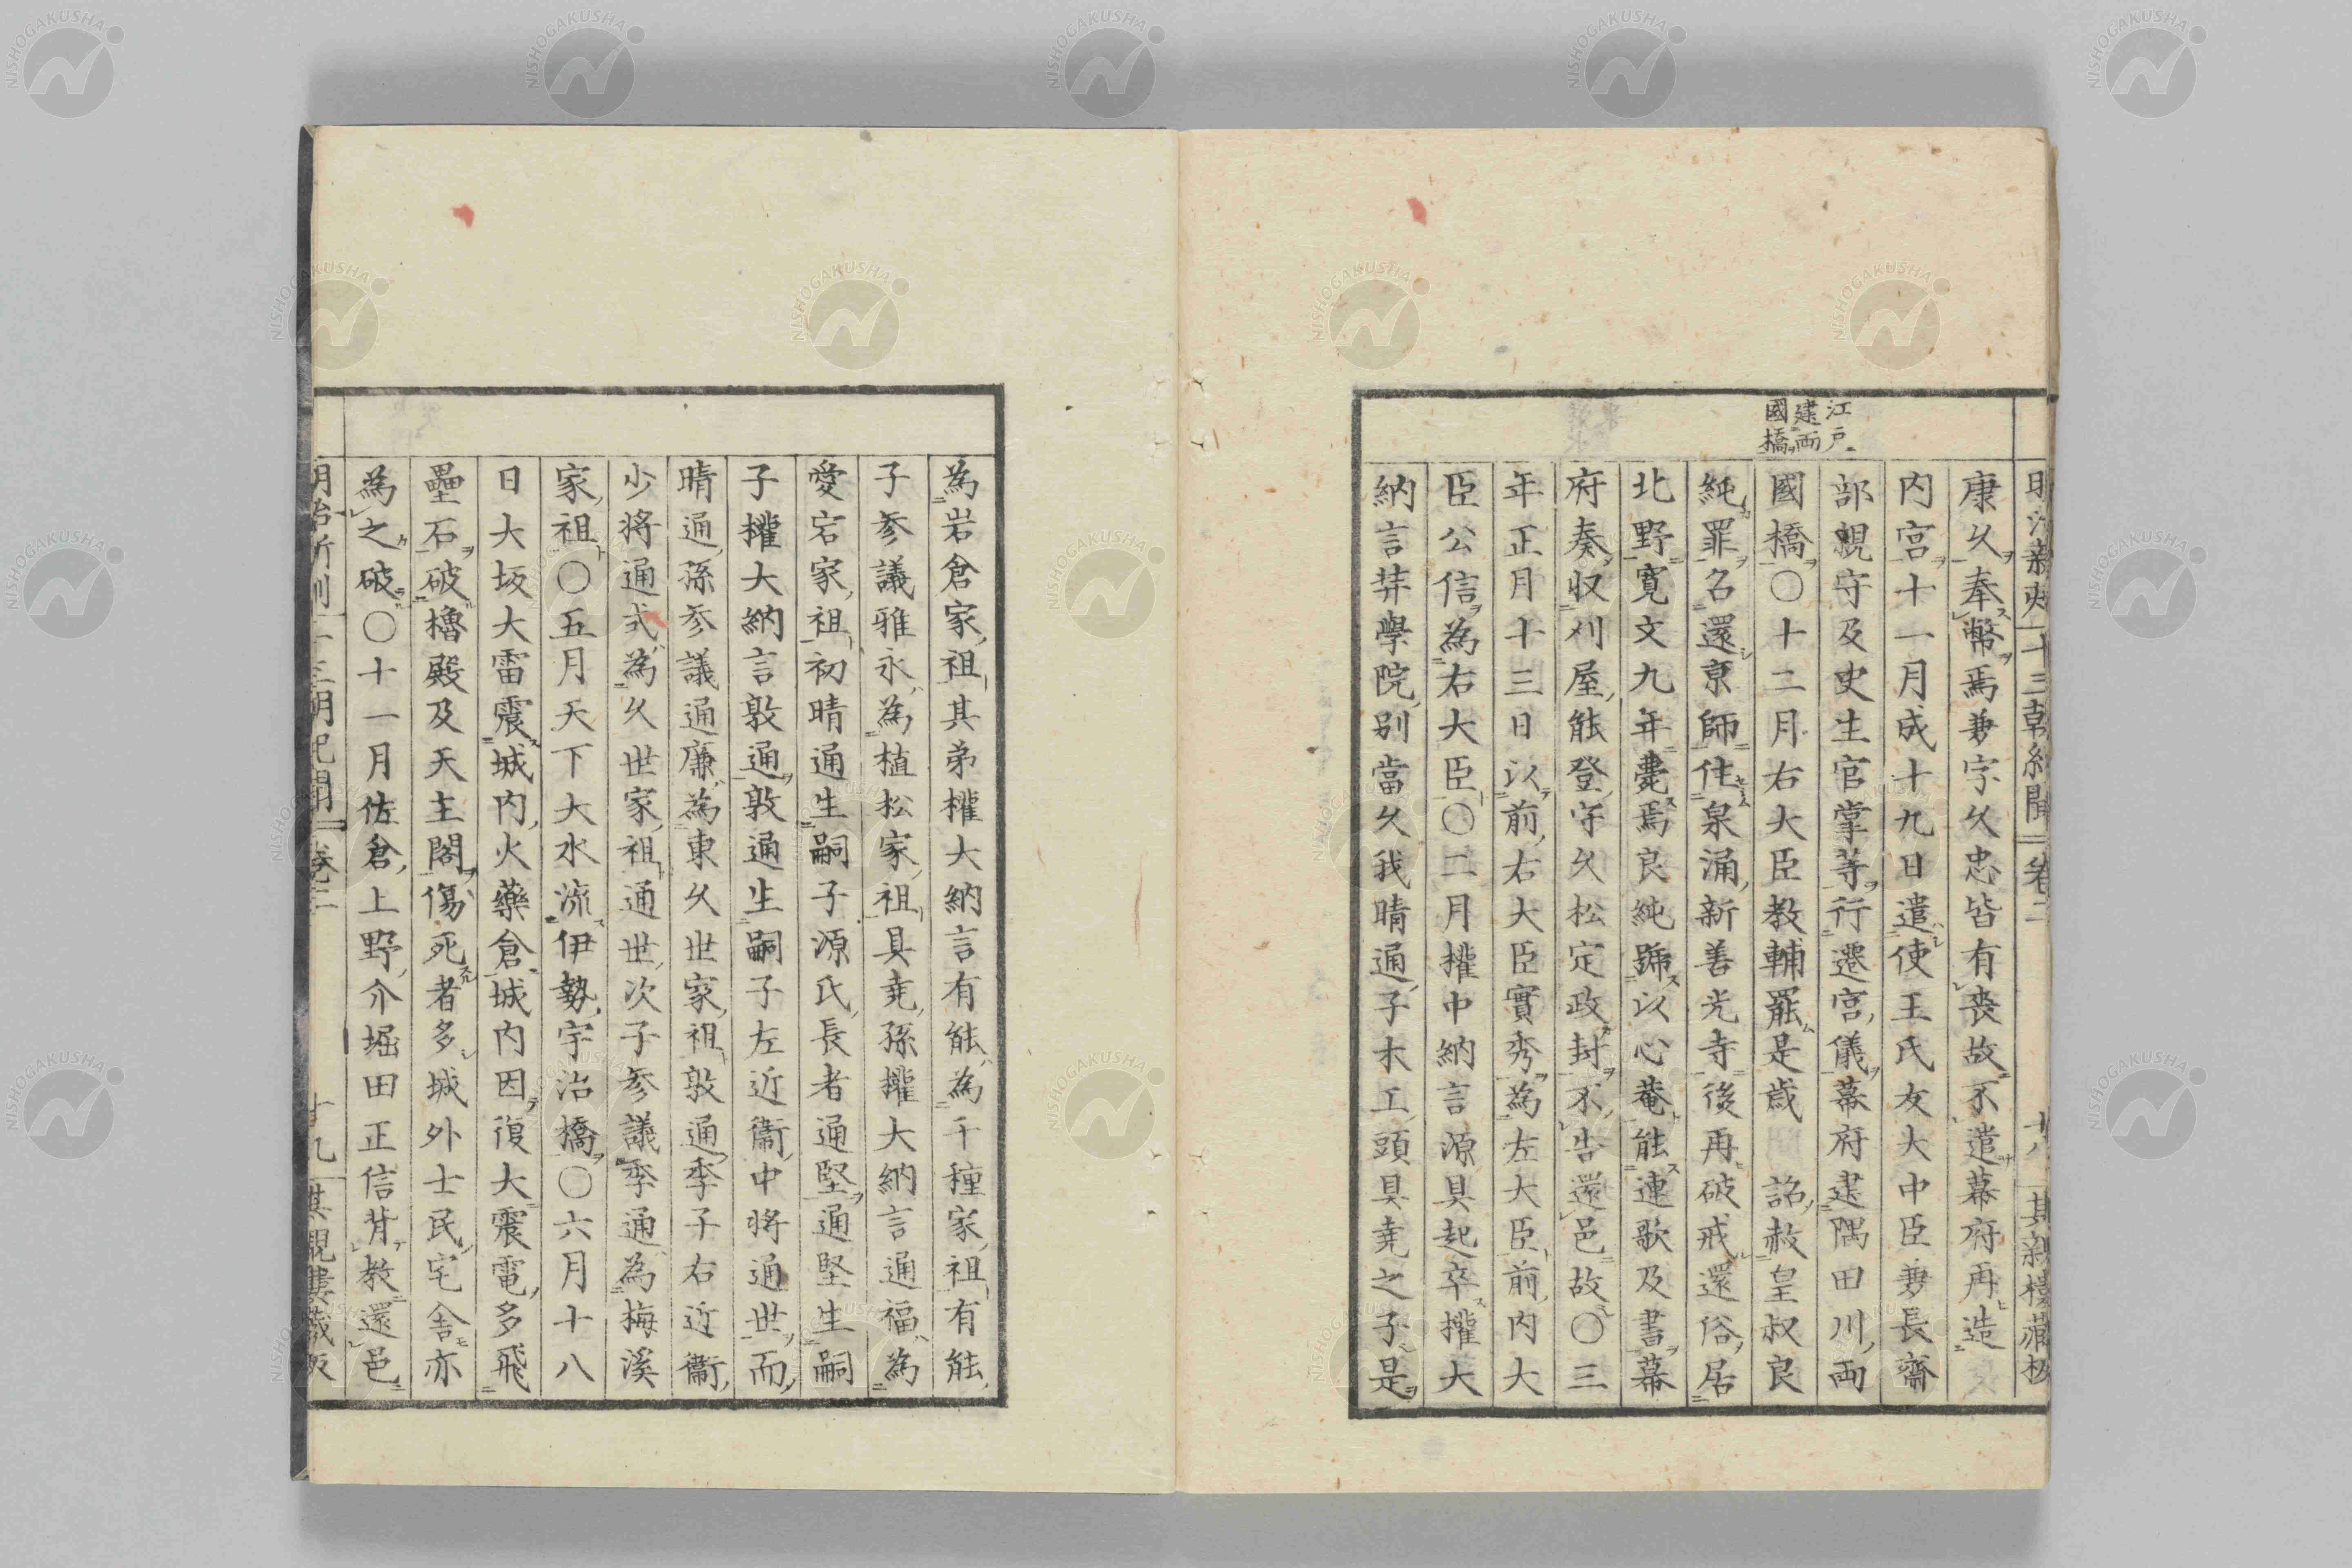 江戸
建両
國橋
康久奉幣焉兼字久忠皆有喪故不遣幕府再造
内宮十一月成十九日遣使王氏友大中臣兼長齋
部親守及史生官掌等行遷宮儀幕府建隅田川両
國橋〇十二月右大臣教輔罷是歳 詔赦皇叔良
純罪名還京師住泉涌新善光寺後再破戒還俗居
北野寛文九年薨焉良純號以心菴能連歌及書幕
府奏収刈屋能登守久松定政封不告還邑故〇三
年正月十三日以前右大臣實秀為左大臣前内大
臣公信為右大臣〇二月權中納言源具起卒權大
納言并學院別當久我晴通子木工頭具堯之子是
為岩倉家祖其弟權大納言有能為千種家祖有能
子参議雅永為植松家祖具堯孫權大納言通福為
愛宕家祖初晴通生嗣子源氏長者通堅通堅生嗣
子權大納言敦通敦通生嗣子左近衞中将通世而
晴通孫参議通廉為東久世家祖敦通季子右近衞
少将通式為久世家祖通世次子参議季通為梅溪
家祖〇五月天下大水流伊勢宇治橋〇六月十八
日大坂大雷震城内火藥倉城内因復大震電多飛
壘石破櫓殿及天主閣傷死者多城外士民宅舎亦
為之破〇十一月佐倉上野介堀田正信背教還邑
十九